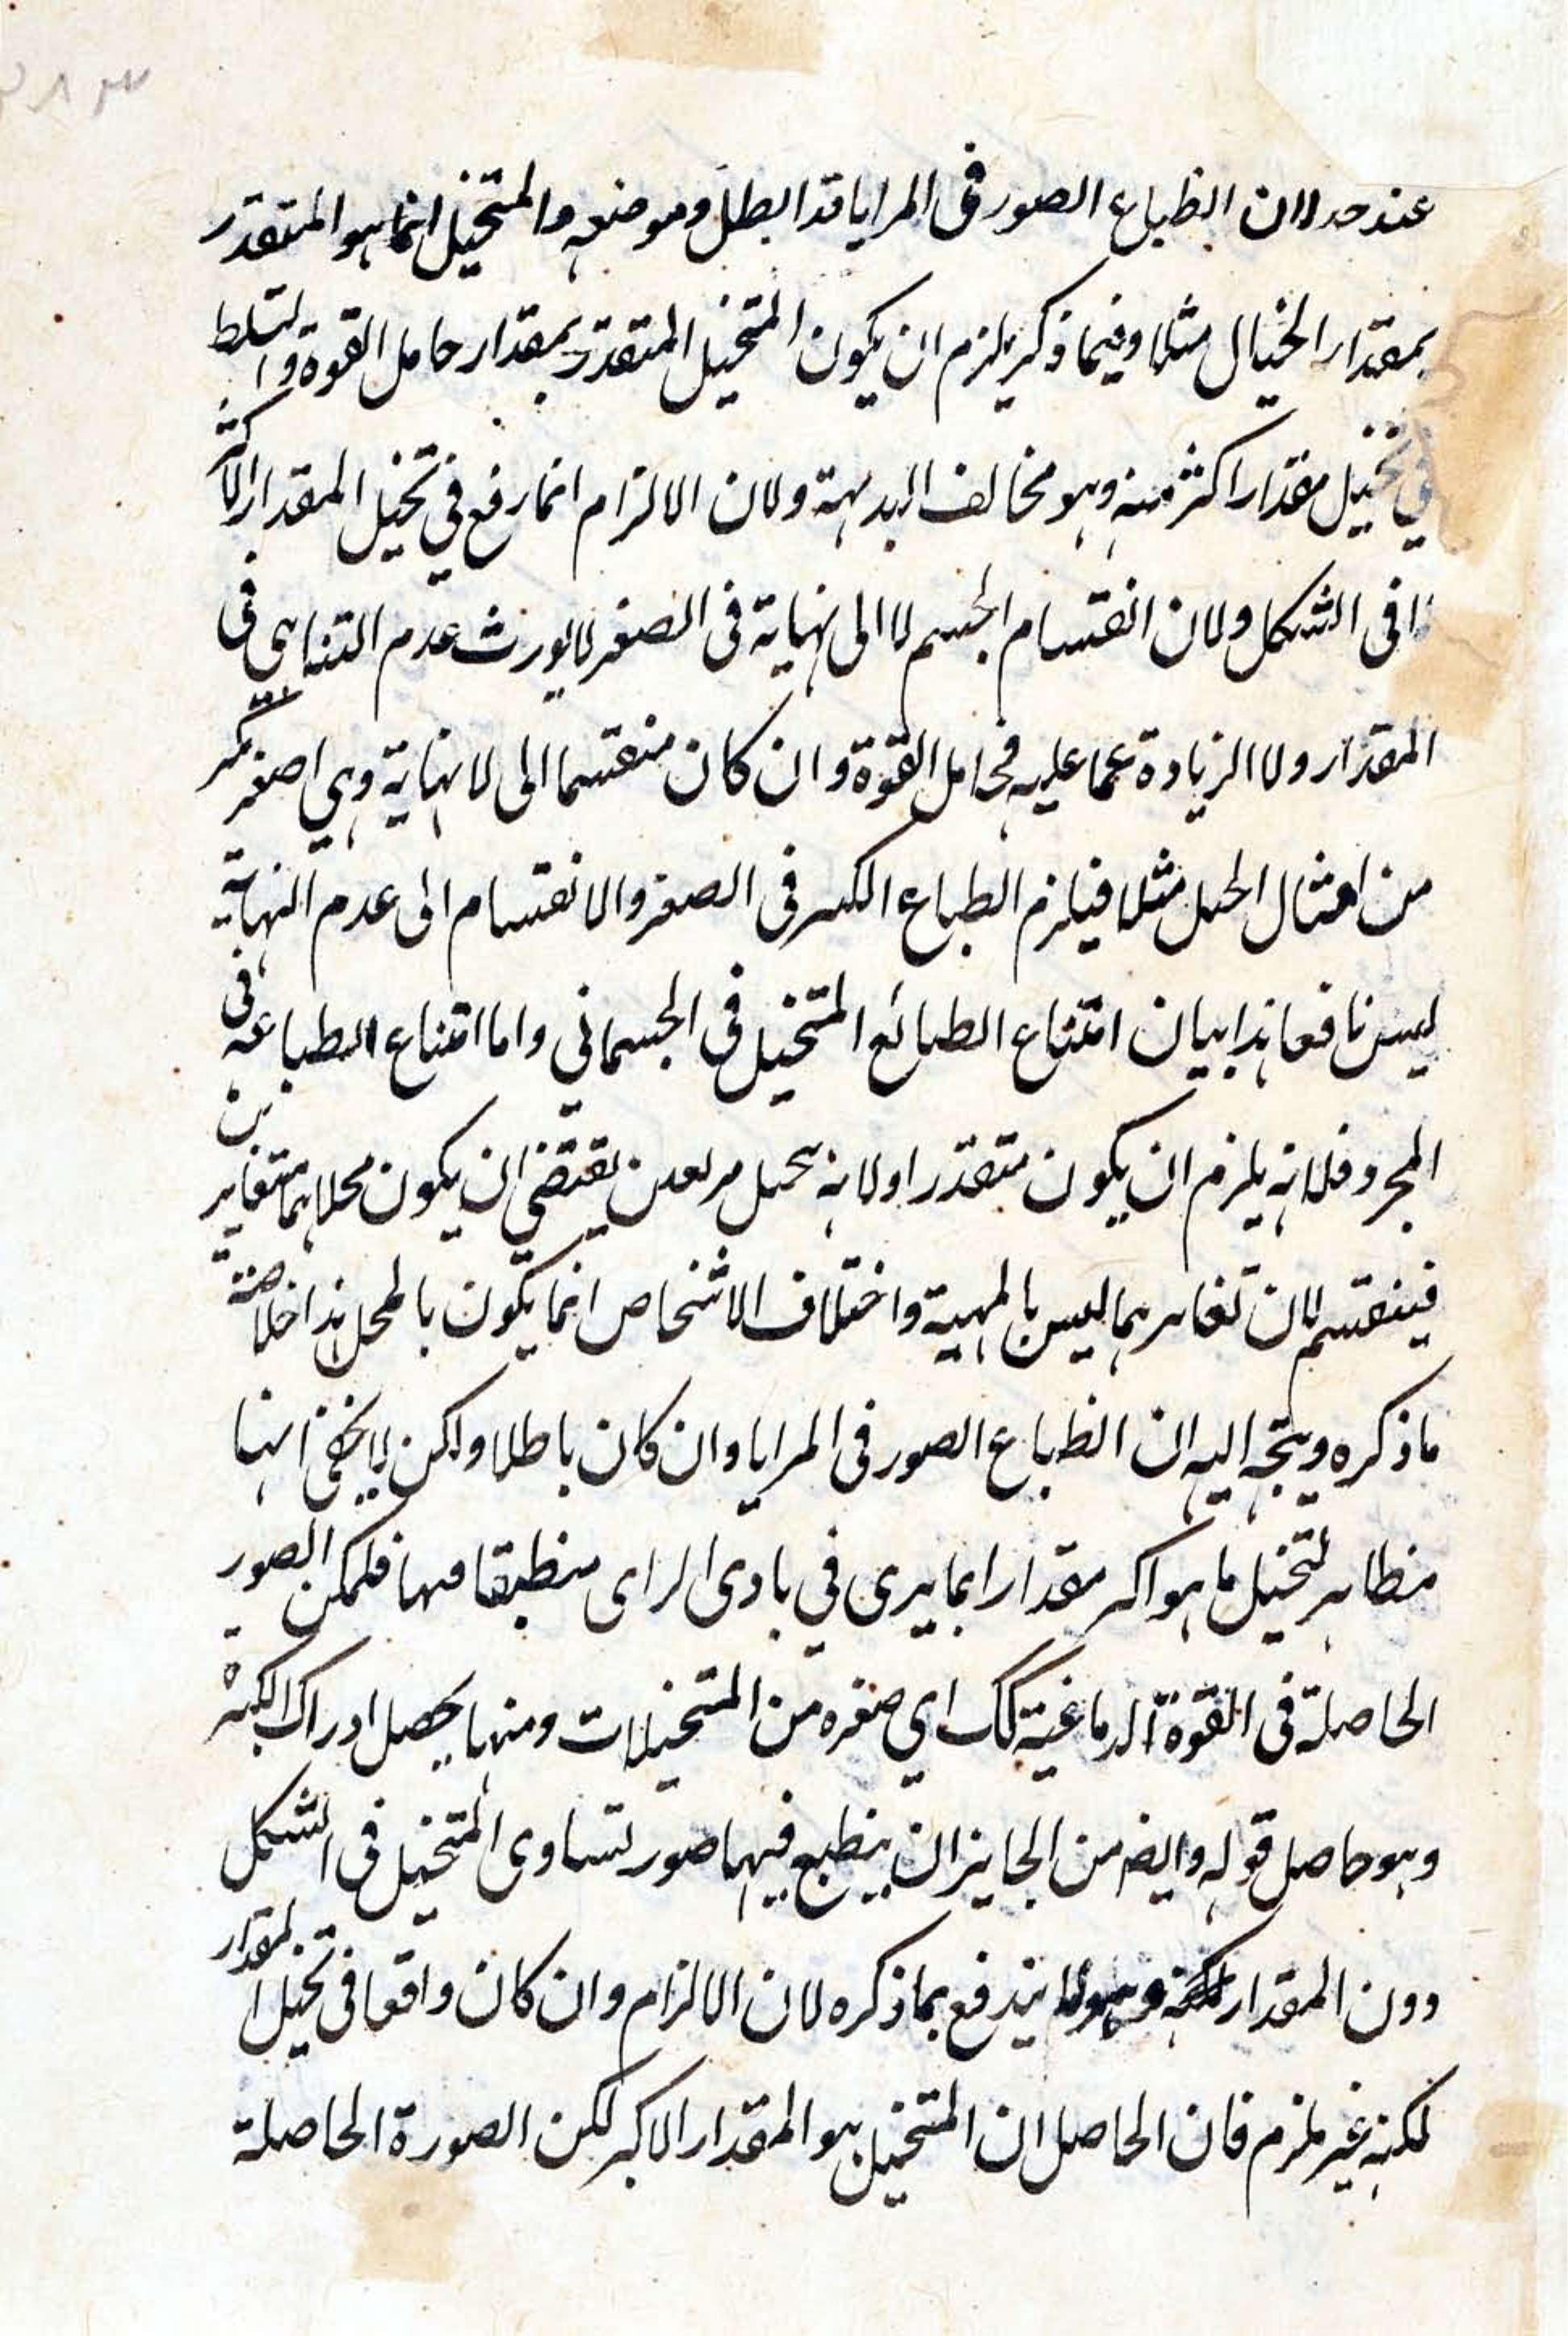 عند حد لان انطباع الصور فى المرايا قد ابطل و موضعه والمتخيل انما هو المتقدر
بمقدار الخيال مثلا و فيما ذكر يلزم ان يكون المتخيل المتقدر بمقدار حامل القوة و التسلط
فى تخيل مقدار اكثر منه وهو مخالف البديهة ولان الالزام انما رفع في تخيل المقدار الاكثر
فى الشكل ولان انقسام الجسم لا الى نهاية فى الصغر لا يورث عدم التناهى فى
المقدار ولا الزيادة عما عليه فحامل القوة وان كان منقسما الى لا نهاية وهي اصغر بكثير
من امثال الجبل مثلا فيلزم انطباع الكبير فى الصغير والانقسام الى عدم النهاية
ليس نافعا هذا بيان امتناع انطباع المتخيل فى الجسمانى واما امتناع انطباعه فى
المجرد فلانه يلزم ان يكون متقدرا ولانه تخيل مربعين يقتضي ان يكون محلاهما متغايرين
فينقسم لان تغايرهما ليس بالمهية واختلاف الاشخاص انما يكون بالمحل هذا خلاصة
ما ذكره ويتجه اليه ان انطباع الصور فى المرايا وان كان باطلا ولكن لا يخفى انها
مظاهر لتخيل ما هو اكبر مقدارا بما يرى في بادى الراى منطبقا فيها فليكن الصور
الحاصلة فى القوة الدماغية كك اي صغيره من المتخيلات ومنها يحصل ادراك الكبيرة
وهو حاصل قوله وايضا من الجايز ان ينطبع فيهما صور تساوى المتخيل فى الشكل
دون المقدار وهو لا يندفع بما ذكره لان الالزام وان كان واقعا فى تخيل المقدار
لكنه غير ملزم فان الحاصل ان المتخيل هو المقدار الاكبر لكن الصورة الحاصلة